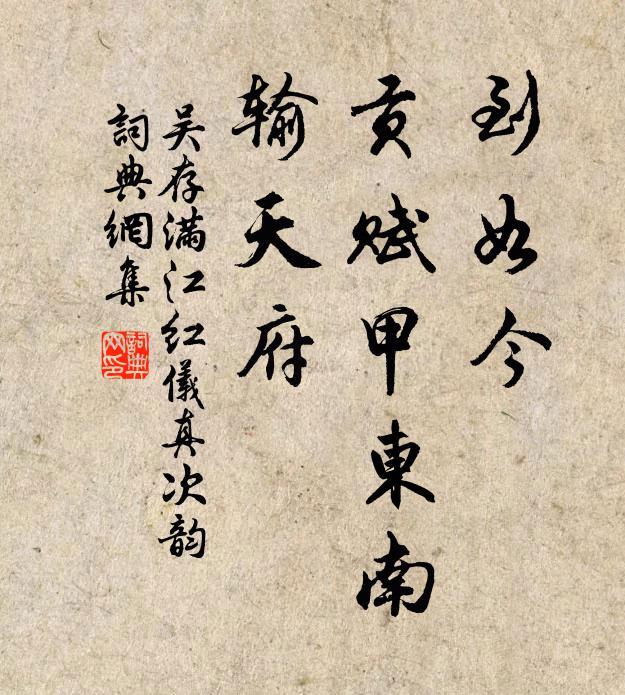 到如今
贡赋甲東南
输天府
吴存满江红儀真次韵
詞典網集
詞典网印